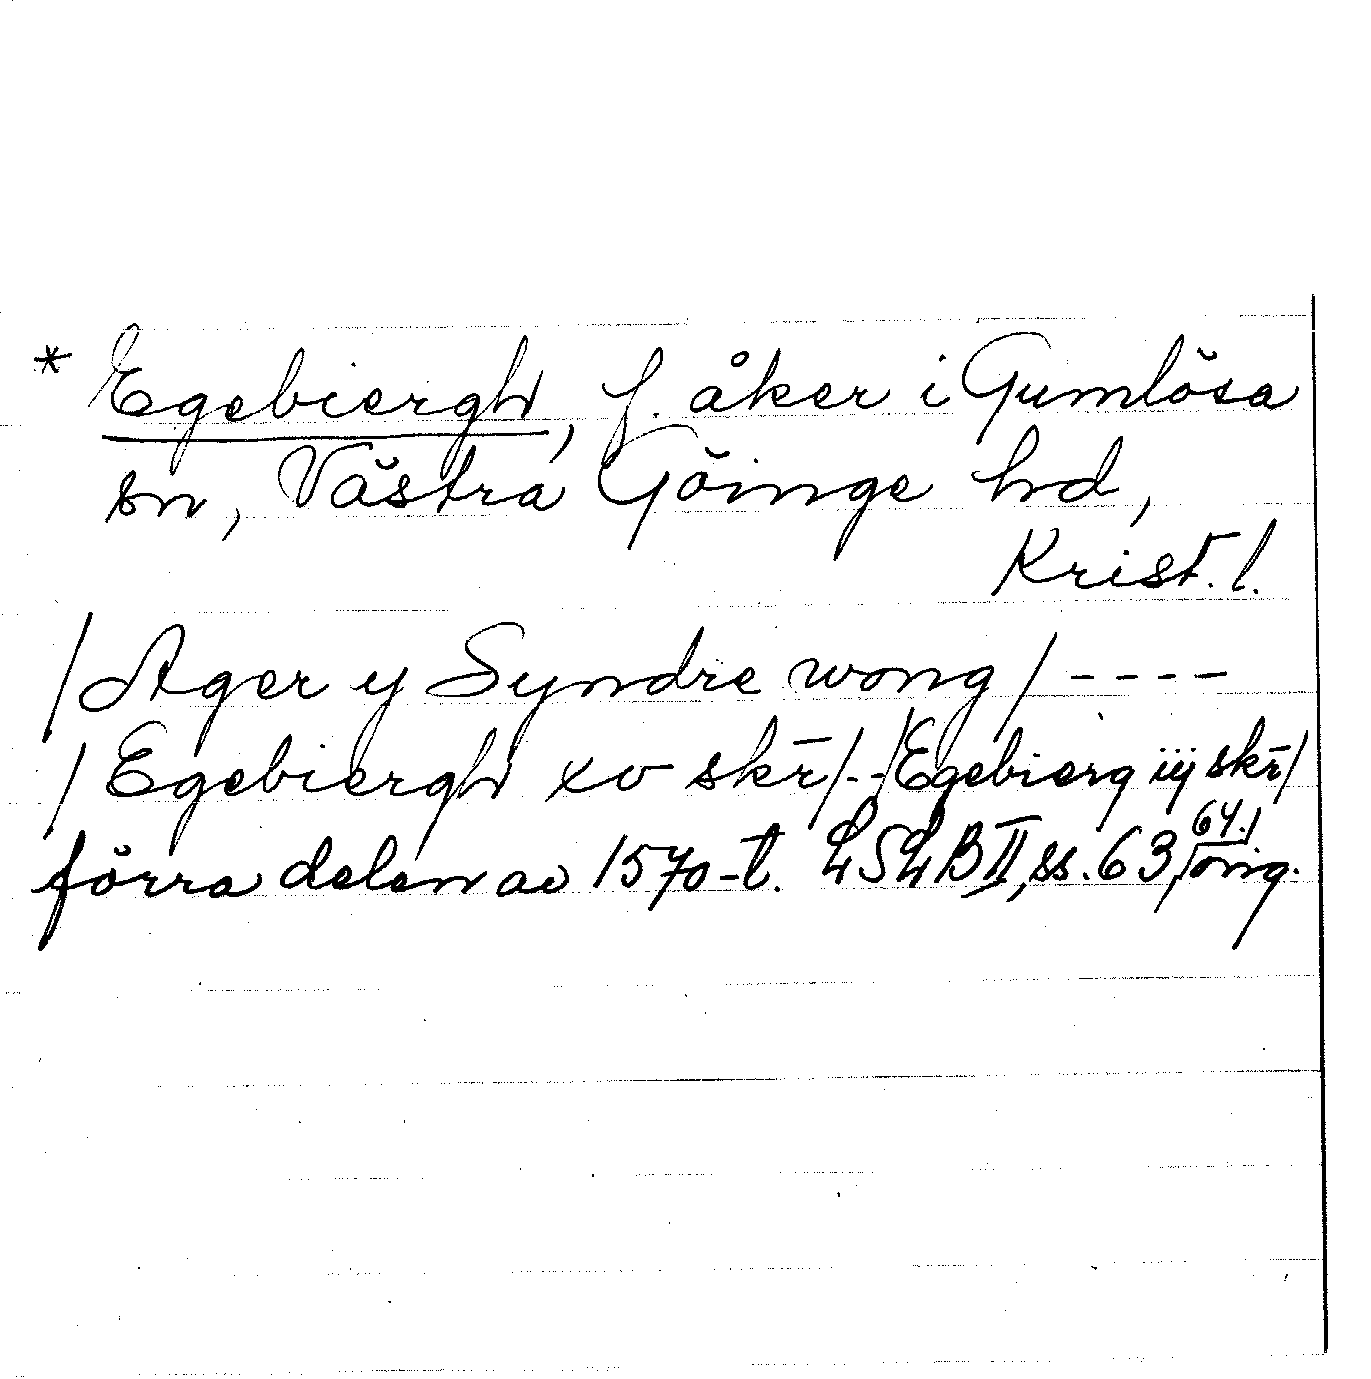 * Egebiergh, f. åker i Gumlösa
sn, Västra Göinge hd,
Krist. l.
/Ager y Syndre wong/ ----
/Egebiergh xv skr̄/--/Egebierg iij skr̄/
förra delen av 1570-t. LSLB II, ss. 63, 64./ orig.